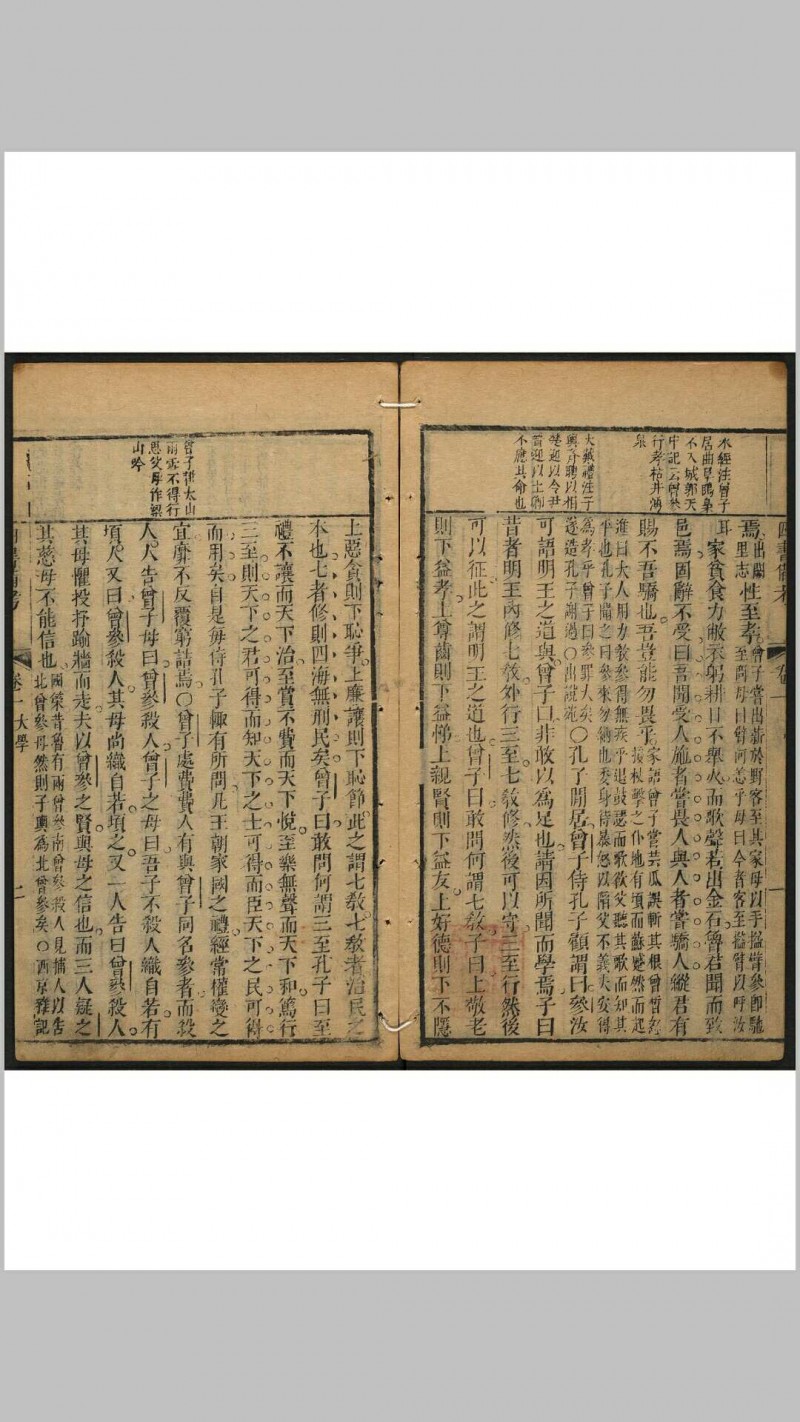 水經注曾子
居曲阜鴟梟
不入城郭天
中記云曾參
行孝枯井湧
泉
大戴禮注子
輿齊聘以相
楚迎以令尹
晉迎以上卿
不應其命也
四書備考 卷一 一
焉出闕里志性至孝曾子嘗出薪於野客至其家母以手搤臂參即馳至問母曰臂何恙乎母曰今者客至搤臂以呼汝
耳家貧食力敝衣躬耕日不舉火而歌聲若出金石魯君聞而致
邑焉固辭不受曰吾聞受人施者常畏人與人者常驕人縱君有
賜不吾驕也吾豈能勿畏乎家語曾子嘗芸瓜誤斬其根曾皙
進曰大人用力教參得無疾乎退鼓瑟而歌欲父聽其歌而知其
平也孔子聞之曰參來勿納也委身待暴怒以陷父不義夫安得
為孝乎曾子曰參罪大矣○孔子閒居曾子侍孔子顧謂曰參汝
可語明王之道與曾子曰非敢以為足也請因所聞而學焉子曰
昔者明王內修七教外行三至七教修然後可以守三至行然後
可以征此之謂明王之道也曾子曰敢問何謂七教子曰上敬老
則下益孝上尊齒則下益悌上親賢則下益友上好德則下不隱
曾子耕太山
雨雪不得行
思父母作梁
山吟
上惡貪則下恥爭上廉讓則下恥節此之謂七教七教者治民之
本也七者修則四海無刑民矣曾子曰敢問何謂三至孔子曰至
禮不讓而天下治至賞不費而天下悅至樂無聲而天下和篤行
三至則天下之君可得而知天下之士可得而臣天下之民可得
而用矣自是每侍孔子輒有所問凡王朝家國之禮經常權變之
宜靡不反覆窮詰焉○曾子處費費人有與曾子同名參者而殺
人人告曾子母曰曾參殺人曾子之母曰吾子不殺人織自若有
頃人又曰曾參殺人其母尚織自若頃之又一人告曰曾參殺人
其母懼投杼踰牆而走夫以曾參之賢與母之信也而三人疑之
其慈母不能信也國策昔魯有兩曾參南曾參殺人見捕人以告北曾參母然則子輿為北曾參矣○西京雜記
卷一 大學 二